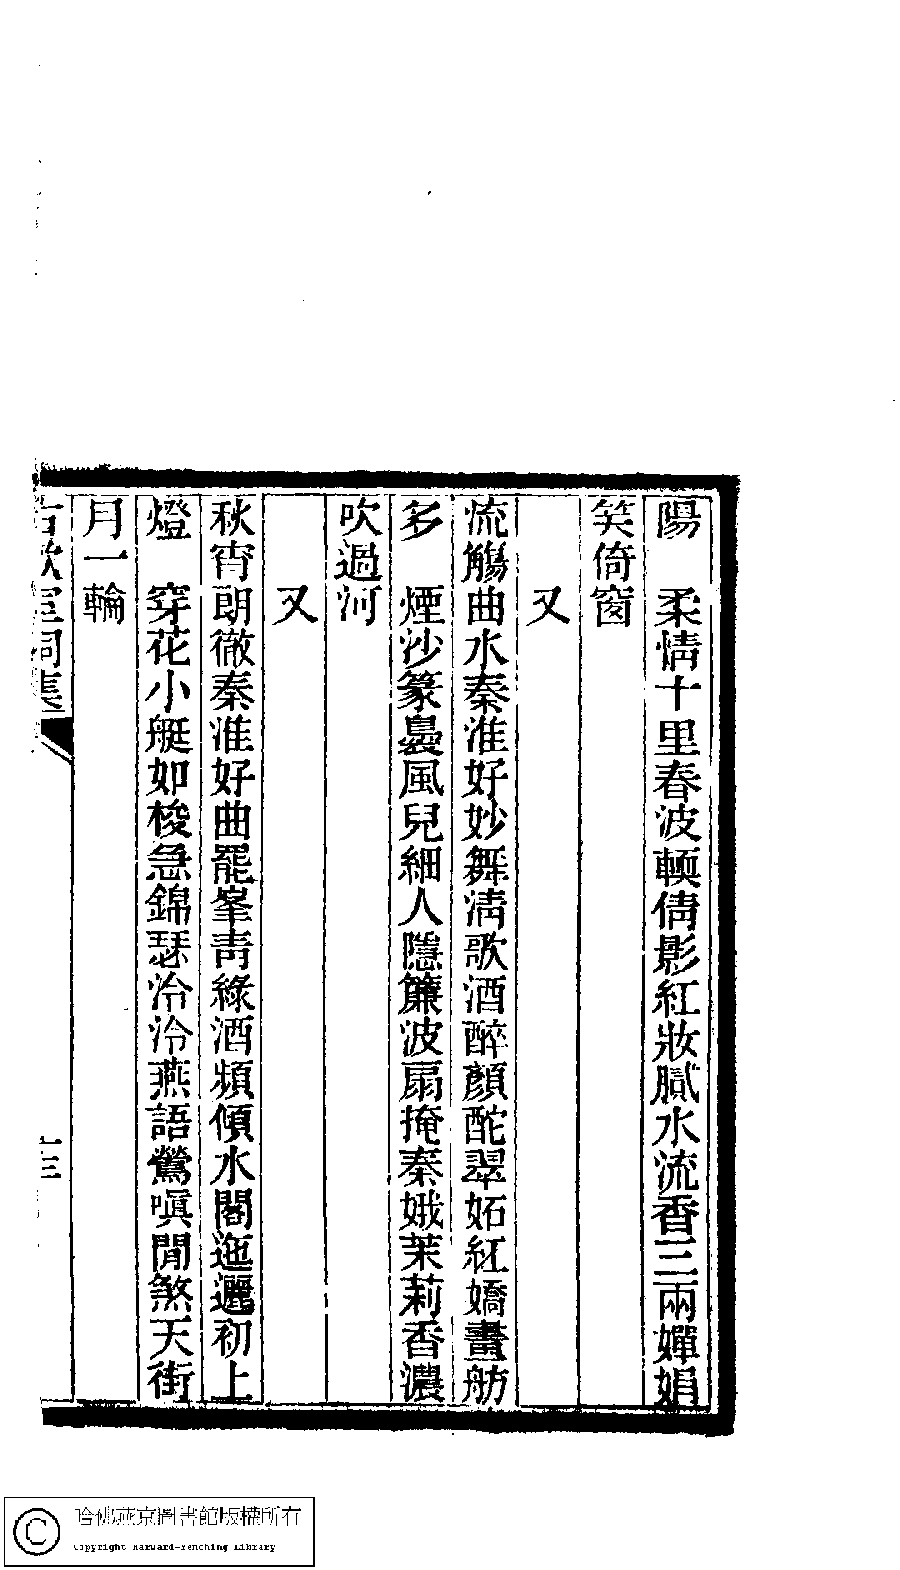 陽　柔情十里春波輭倩影紅妝膩水流香三兩嬋娟
笑倚窗
又
流觴曲水秦淮好妙舞淸歌酒醉顏酡翠妬紅嬌畫舫
多　煙沙篆裊風兒細人隱簾波扇掩秦娥茉莉香濃
吹過河
又
秋宵朗徹秦淮好曲罷峯靑綠酒頻傾水閣迤邐初上
燈　穿花小艇如梭急錦瑟泠泠燕語鶯嗔閒煞天街
月一輪
室詞集
十三
哈佛燕京圖書館版權所有
Copyright Harvard-Yenching Library